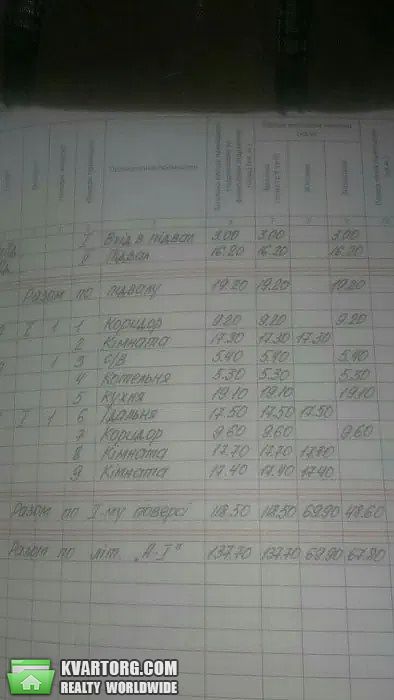 Призначення приміщення
I Вхід в підвал 3.00 3.00 3.00
II Підвал 16.20 16.20 16.20
Разом по підвалу 19.20 19.20 19.20
I 1 1 Коридор 9.20 9.20 9.20
2 Кімната 17.30 17.30 17.30
1 3 С/В 5.40 5.40 5.40
4 Котельня 5.30 5.30 5.30
5 Кухня 19.10 19.10 19.10
I 1 6 Їдальня 17.50 17.50 17.50
7 Коридор 9.60 9.60 9.60
8 Кімната 17.70 17.70 17.70
9 Кімната 17.40 17.40 17.40
Разом по I-му поверсі 118.50 118.50 69.90 48.60
Разом по літ. „А-I" 137.70 137.70 69.90 67.80
KVARTORG.COM
REALTY WORLDWIDE